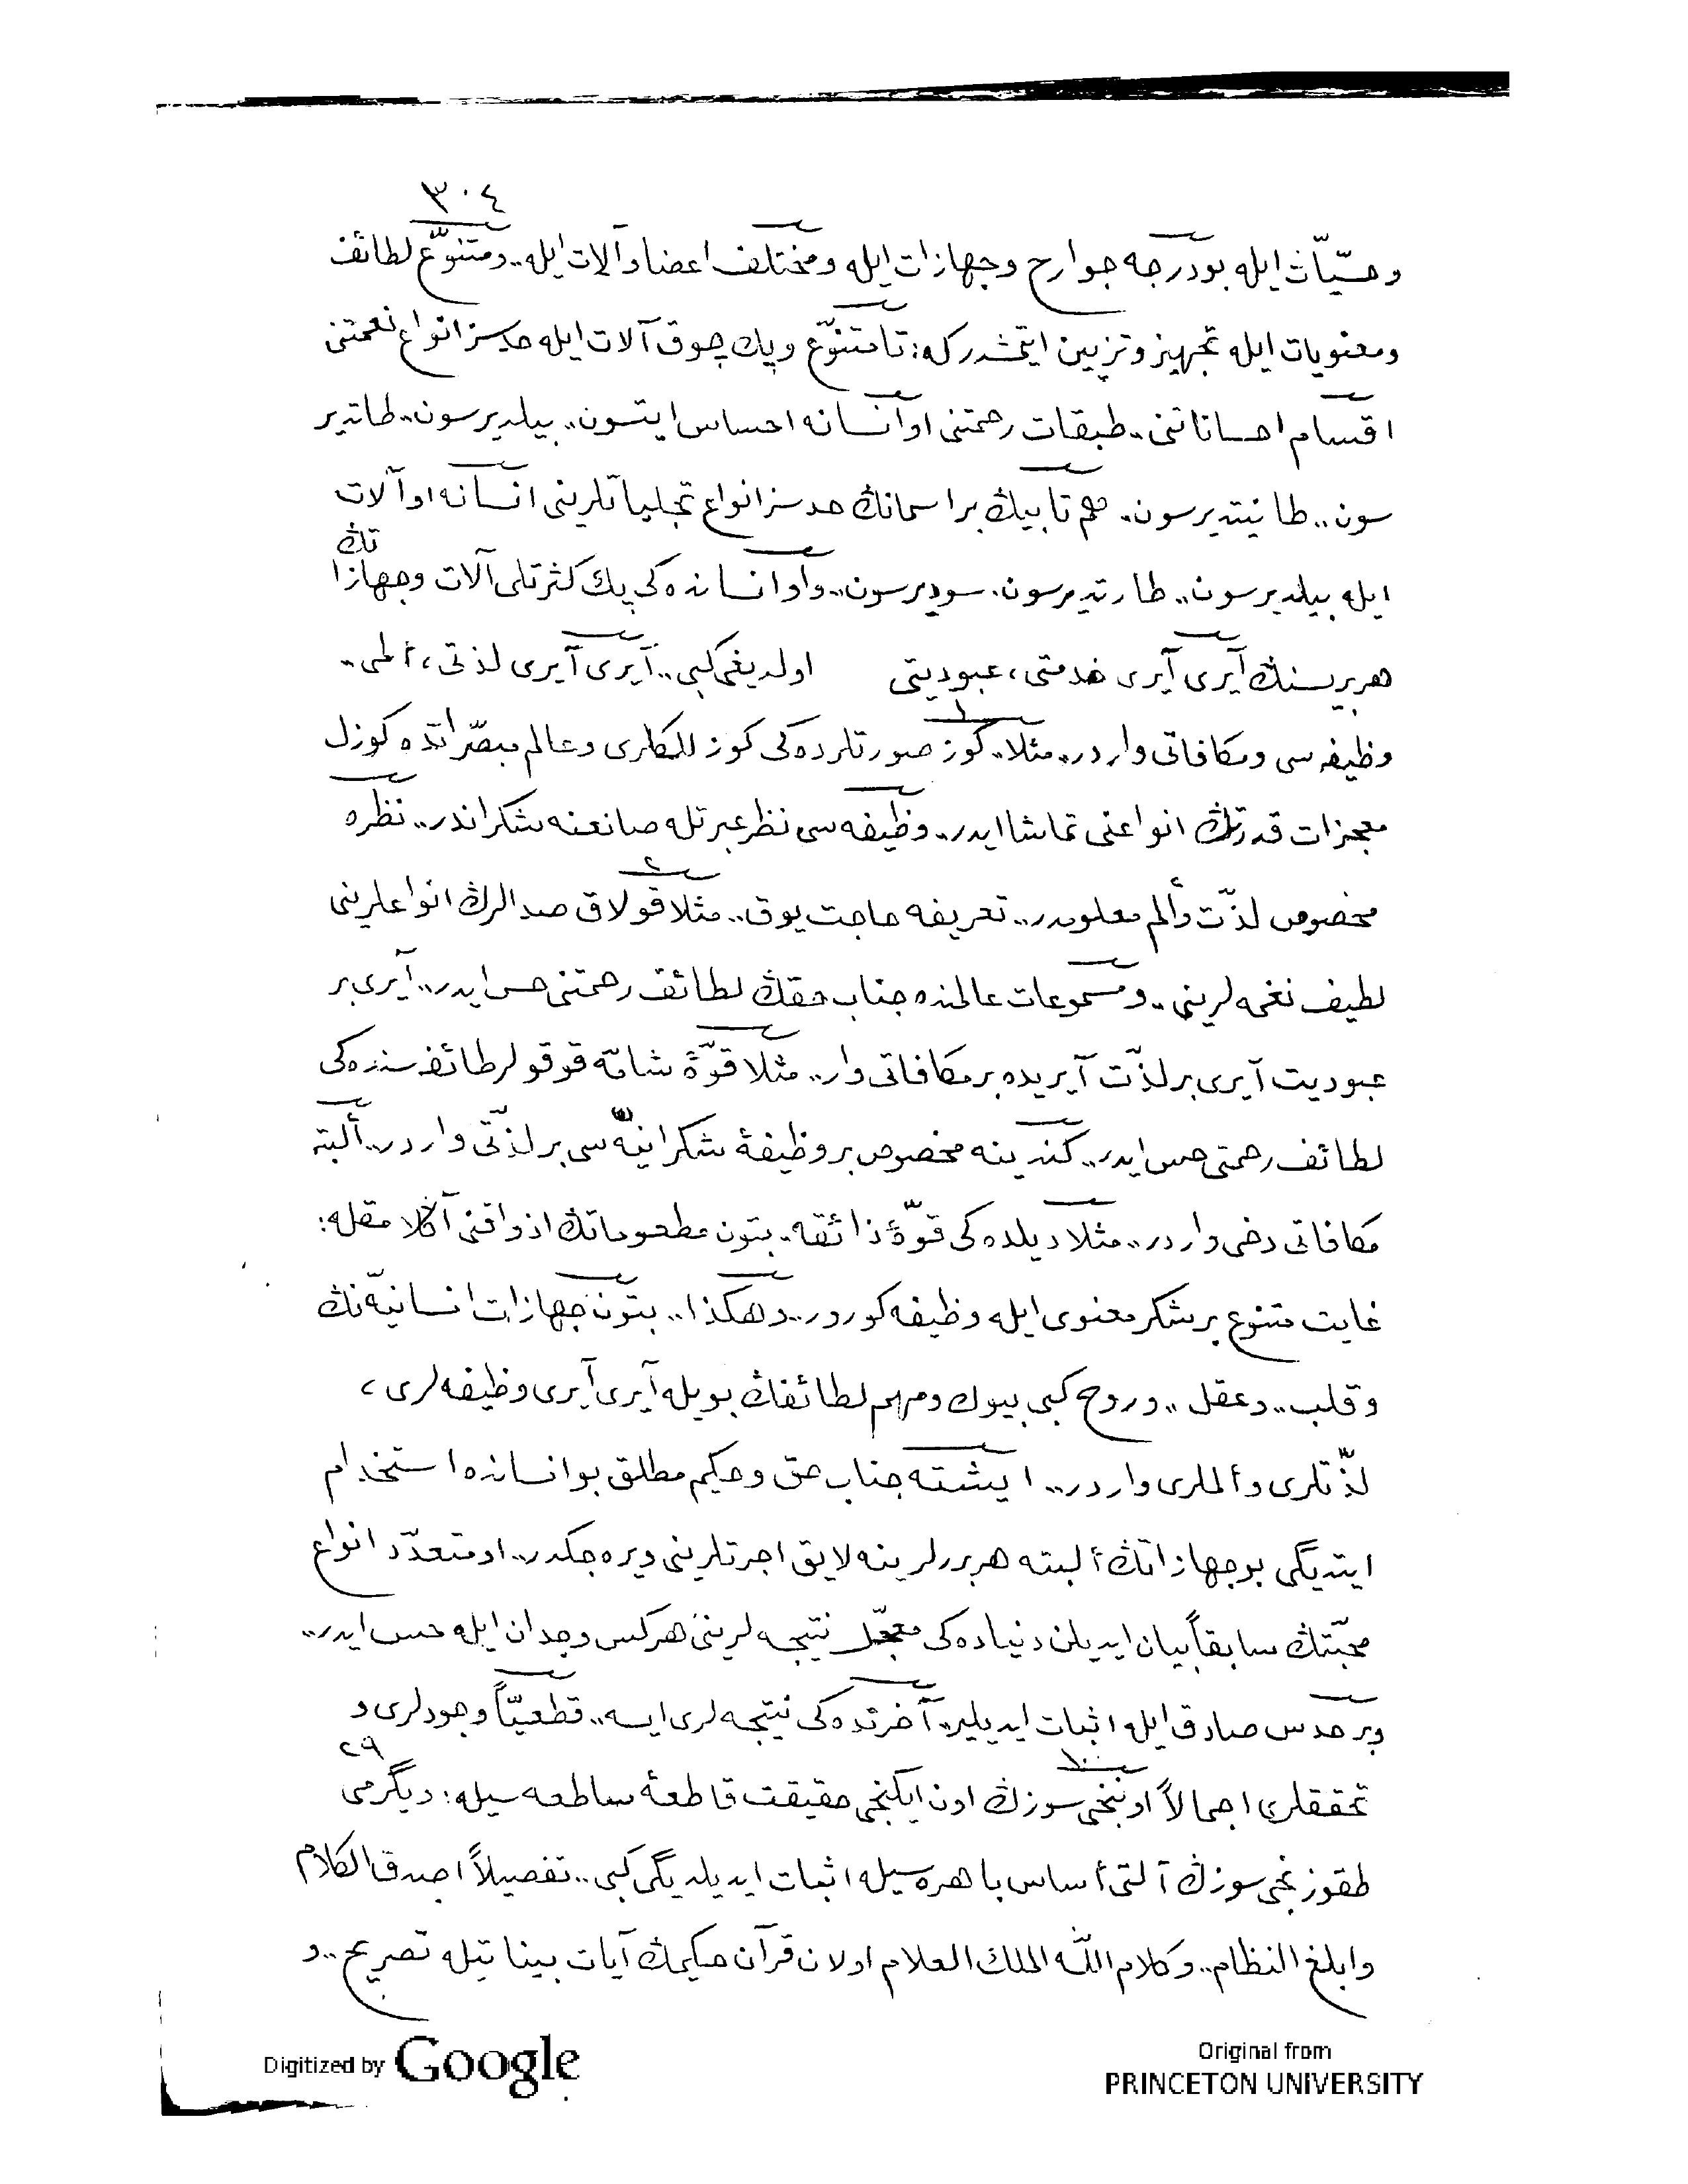 ٣٠٤
وحسّیّات ایله بودرجه جوارح وجهازات ایله ومختلف اعضا وآلات ایله.. ومتنوّع لطائف
ومعنویات ایله تجهیز وتزیین ایتمشدرکه: تا متنوّع وپك چوق آلات ایله حدسز انواع نعمتنی
اقسام احساناتنی.. طبقات رحمتنی او انسانه احساس ایتسون.. بیلدیرسون.. طاتدیر
سون.. طانیتدیرسون. هم تا بیڭ بر اسمانڭ حدسز انواع تجلیاتلرینی انسانه او آلات
ایله بیلدیرسون.. طارتدیرسون. سودیرسون.. و او انسانده کی پك کثرتلی آلات وجهازا
تڭ
هربریسنڭ آیری آیری خدمتی، عبودیتی اولدیغی کبی.. آیری آیری لذتی، ألمی..
وظیفه سی ومکافاتی واردر. مثلا.. کوز صورتلرده کی کوزللکلری وعالم مبصّراتده کوزل
معجزات قدرتڭ انواعنی تماشا ایدر.. وظیفه سی نظر عبرتله صانعنه شکراندر.. نظره
مخصوص لذّت وألم معلومدر.. تعریفه حاجت یوق.. مثلا قولاق صدالرڭ انواعلرینی
لطیف نغمه لرینی.. ومسموعات عالمنده جناب حقڭ لطائف رحمتنی حس ایدر.. آیری بر
عبودیت آیری بر لذّت آیریده بر مکافاتی وار.. مثلا قوّۀ شامّه قوقولر طائفه سنده کی
لطائف رحمتی حس ایدر.. کندینه مخصوص بر وظیفۀ شکرانیّه سی بر لذّتی واردر.. ألبته
مکافاتی دخی واردر.. مثلا دیلده کی قوّۀ ذائقه. بتون مطعوماتڭ اذواقنی آڭلامقله:
غایت متنوع بر شکر معنوی ایله وظیفه کورور.. وهکذا.. بتون جهازات انسانیّه نڭ
وقلب.. وعقل.. وروح کبی بیوك ومهم لطائفڭ بویله آیری آیری وظیفه لری،
لذّتلری وألملری واردر.. ایشته جناب حق وحکیم مطلق بو انسانده استخدام
ایتدیگی بو جهازاتڭ ألبته هربرلرینه لایق اجرتلرینی ویره جکدر.. او متعدّد انواع
محبّتڭ سابقاً بیان ایدیلن دنیاده کی معجّل نتیجه لرینی هرکس وجدان ایله حس ایدر..
وبر حدس صادق ایله اثبات ایدیلیر.. آخرتده کی نتیجه لری ایسه.. قطعیّاً وجودلری و
تحققلری اجمالاً اوننجی سوزڭ اون ایکنجی حقیقت قاطعۀ ساطعه سیله: ویگرمی
١٠
٢٩
طقوزنجی سوزڭ آلتی أساس باهره سیله اثبات ایدیلدیگی کبی.. تفصیلاً اصدق الکلام
وابلغ النظام.. وکلام الله الملك العلام اولان قرآن حکیمڭ آیات بیناتیله تصریح.. و
Digitized by Google
Original from
PRINCETON UNIVERSITY